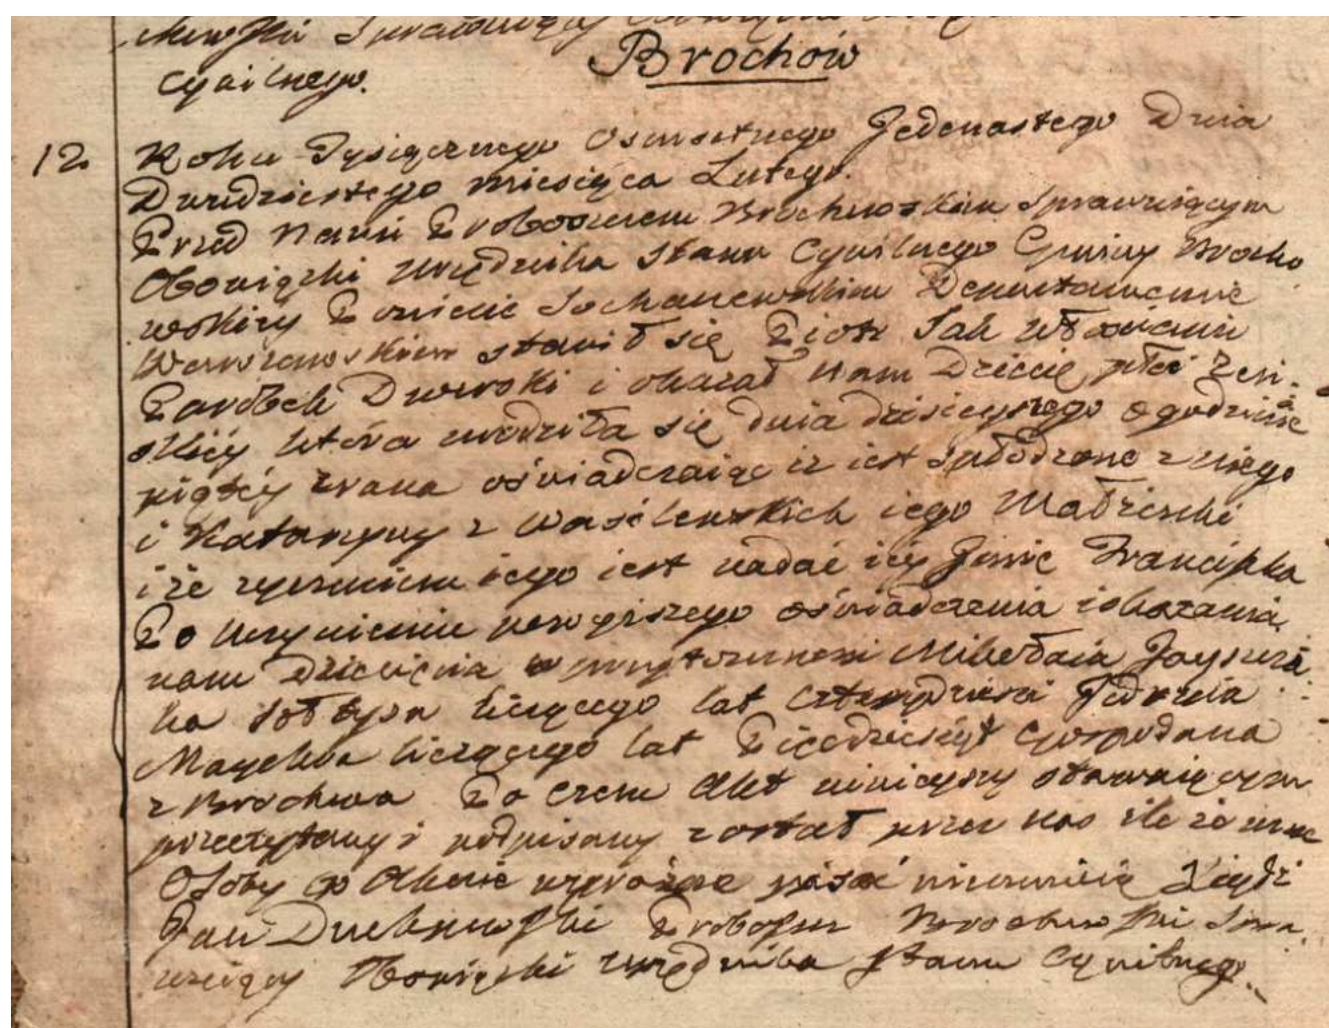 Sprawuiący
Brochów
Cywilnego.
12. Roku Tysiącznego Osmsetnego Jedenastego Dnia
Dwudziestego Miesiąca Lutego.
Przed Nami Proboszczem Brochowskim Sprawuiącym
Obowiązki Urzędnika Stanu Cywilnego Gminy Brocho
wskiey Powiecie Sochaczewskim Departamencie
Warszawskim stawił się Piotr Jak włościanin
Parobek Dworski i okazał Nam Dziecię płci Zen
skiey która urodziła się dnia dzisieyszego o godzinie
piątey zrana oświadczaiąc iz iest Spłodzone z niego
i Katarzyny z Wasilewskich iego Małżonki
i że życzeniem iego iest nadać iey Jmie Franciszka
Po uczynieniu powyzszego oświadczenia i okazania
nam dziecięcia w przytomności Mikołaia
ka Sołtysa liczącego lat czterdzieści Jędrzeia
liczącego lat Pięcdziesiąt Gospodarza
z Brochowa Po czem Akt ninieyszy stawaiącym
przeczytany i podpisany został przez nas ile że
Osoby w Akcie wyrażone pisać nieumieią Xiądz
Jan Duchnowski Proboszcz Brochowski Spra
wuiący Obowiązki urzędnika Stanu Cywilnego.